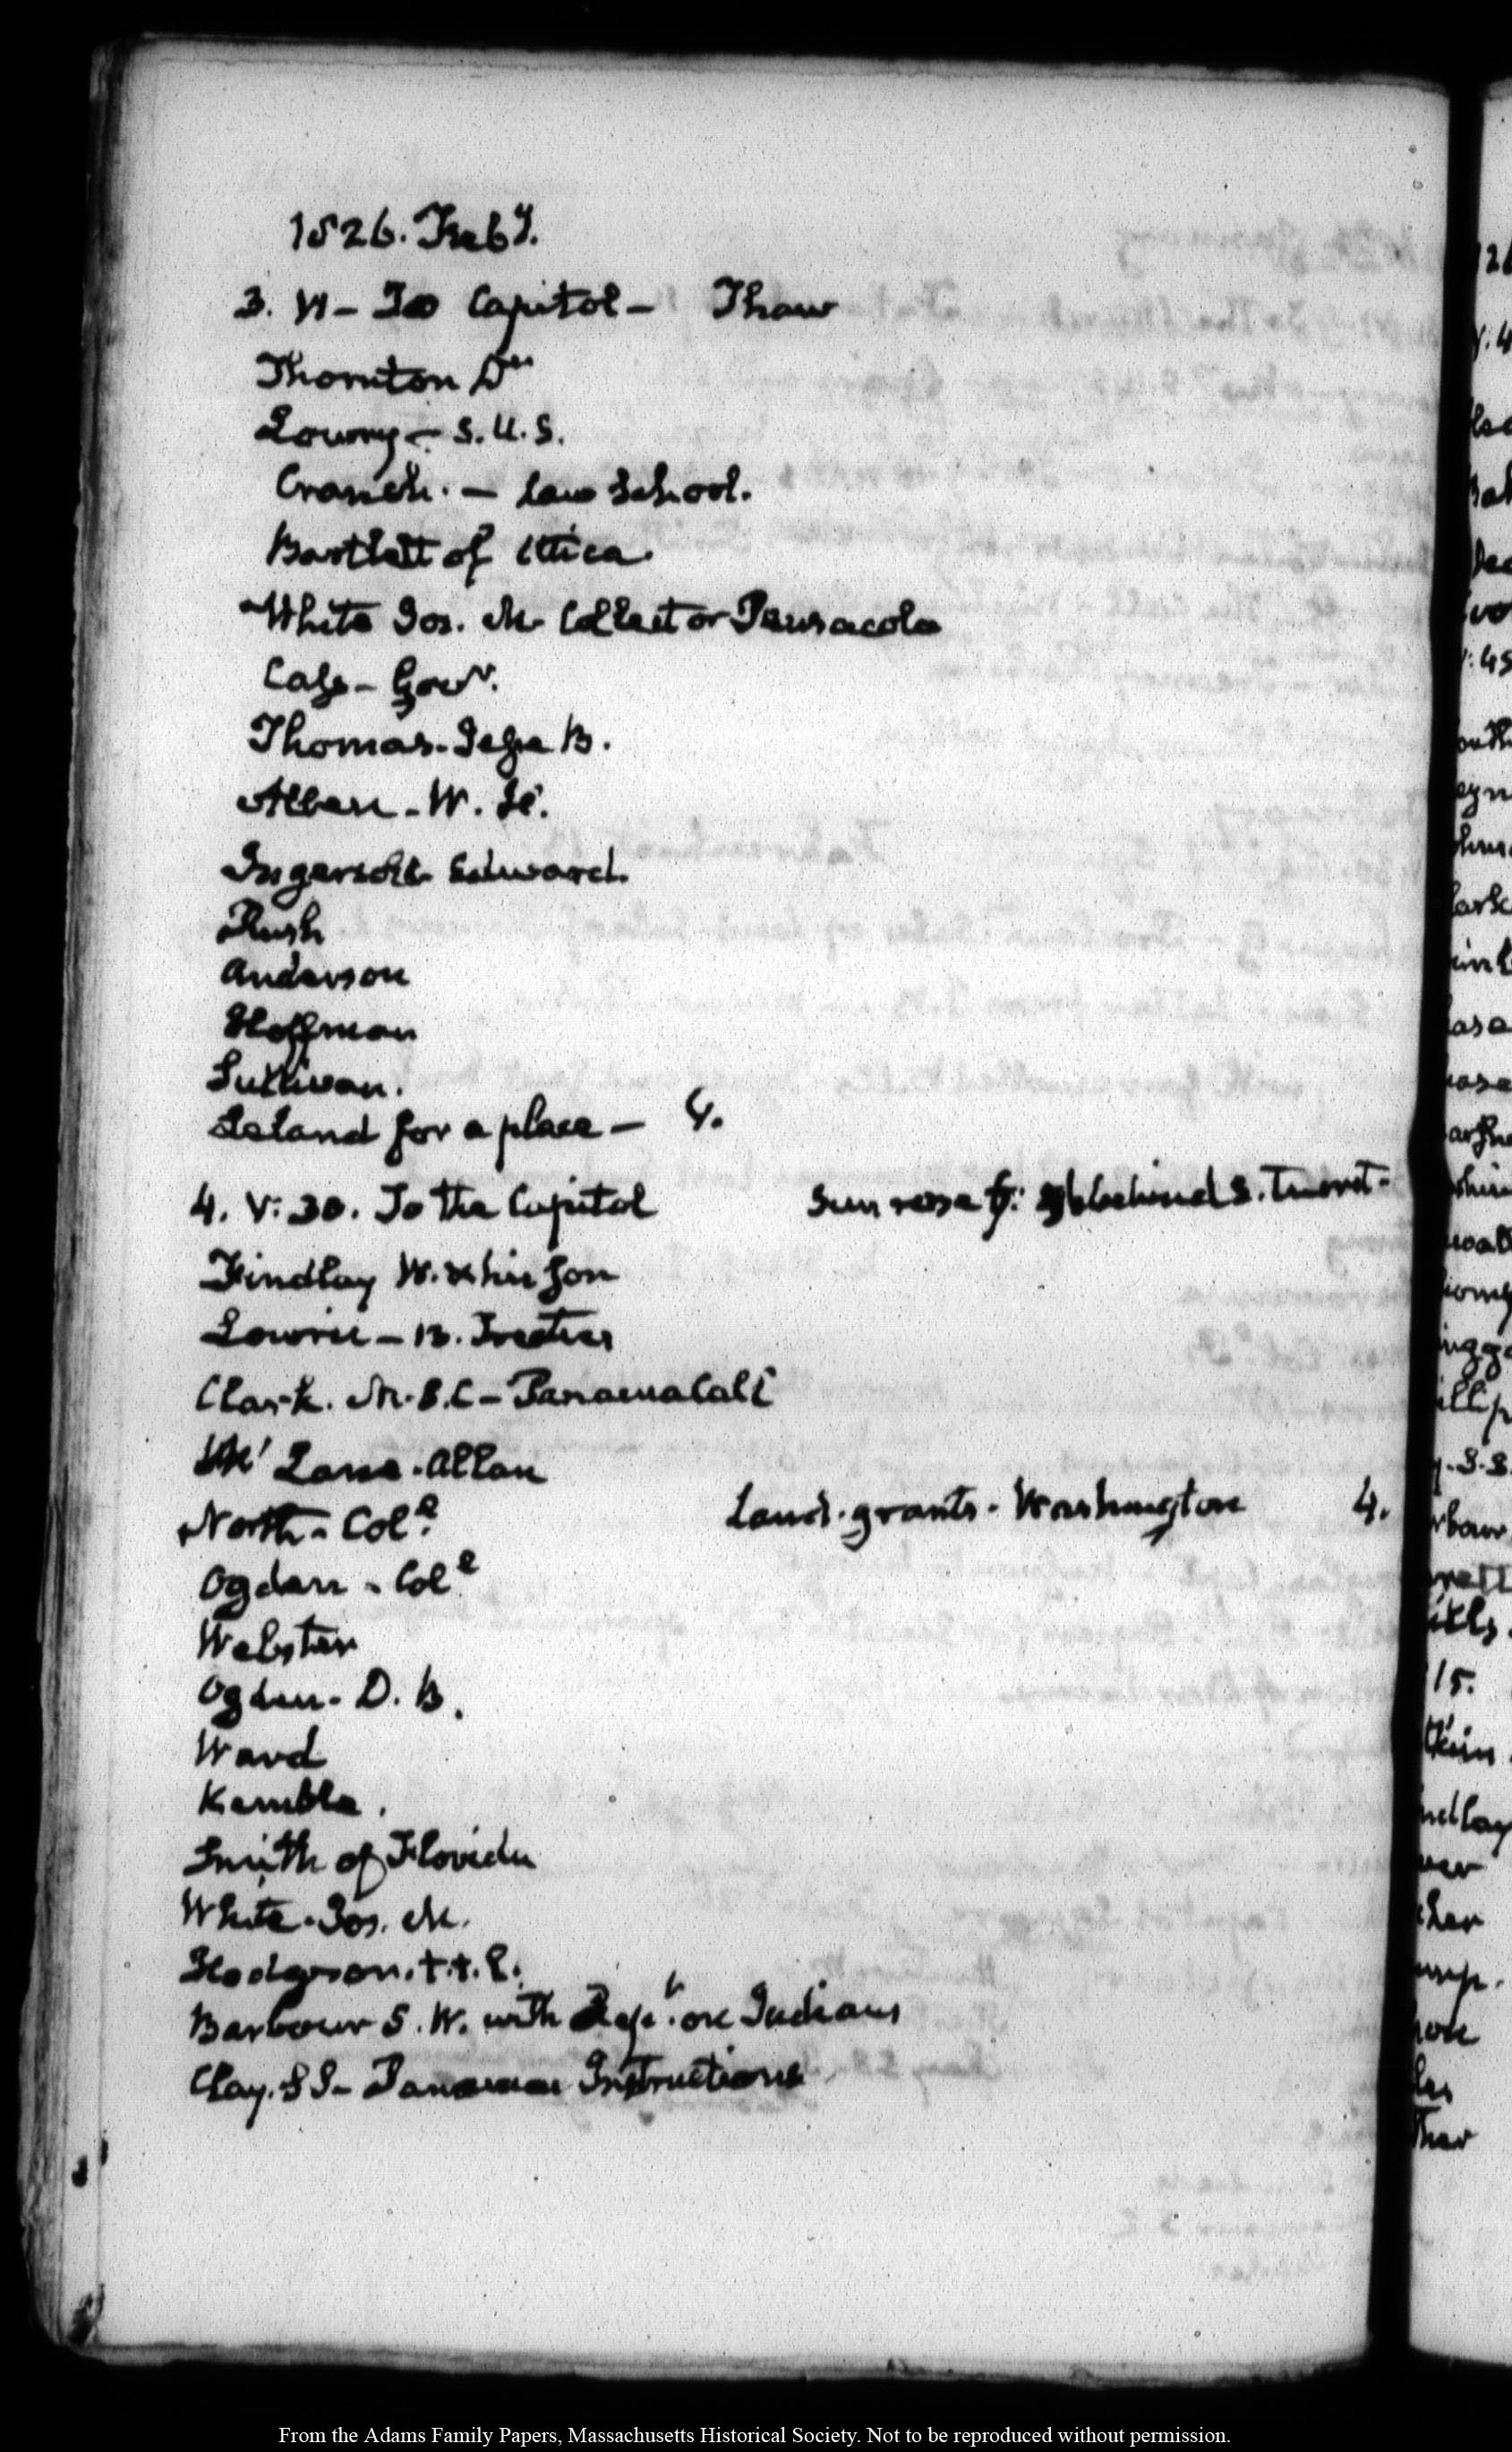 1826. Feby.
3. VI - To Capitol - Thaw
Thornton Dr
Lowry - S.U.S.
Cranch. - Law School.
Bartlett of Utica.
White Jos. M. Collector Pensacola
Cass - Govr.
Thomas - Jesse B.
Allen - W.
Ingersoll Edward.
Rush
Anderson
Hoffman
Sullivan.
Leland for a place - 4.
4. V:30. To the Capitol Sun rose behind S. Turret.
Findlay W. & his son
Lowrie - B.
Clark. M.B.C - Panama Call
McLane - Allan
North - Coll. Land grants - Washington 4.
Ogden - Coll.
Webster
Ogden - D. B.
Ward
Kemble.
Smith of Florida
White - Jos. M.
Hodgson. t.t.l.
Barbour S. W. with Rept. on Indians
Clay. SS - Panama Instructions
From the Adams Family Papers, Massachusetts Historical Society. Not to be reproduced without permission.